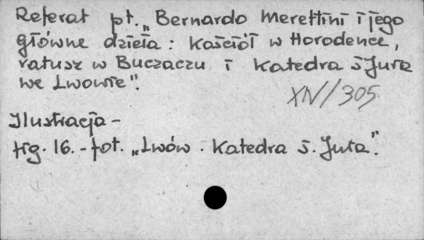 Referat pt. „Bernardo Merettini i jego
główne dzieła: Kościół w Horodence,
ratusz w Buczaczu i Katedra ś Jura
we Lwowie".
XIV/305
Ilustracja -
fig. 16. - fot. „Lwów. Katedra ś. Jura".